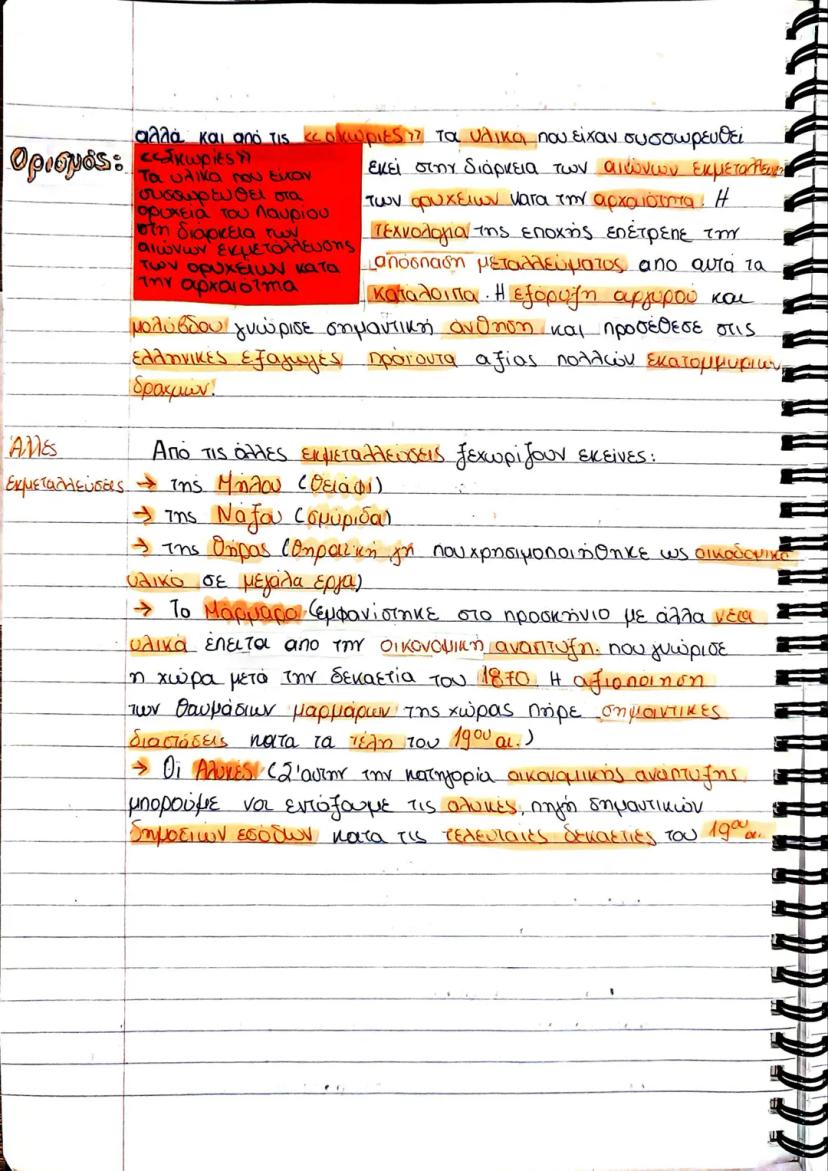 αλλά και από τις «σκωριες» τα υλικα που είχαν συσσωρευθεί
Ορισμός:
«Σκωριες»
Τα υλικα που ειχαν
συσσωρευθει στα
ορυχεια του Λαυρίου
στη διαρκεια των
αιώνων εκμετάλλευσης
των ορυχείων κατα
την αρχαιοτητα
εκεί στην διάρκεια των αιώνων
των ορυχειων κατα την αρχαιοτητα. Η
τεχνολογια της εποχής επέτρεπε την
απόσπαση μεταλλεύματος απο αυτά τα
κατάλοιπα. Η εξόρυξη αργύρού και
μολύβδου γνώρισε σημαντική άνθηση και προσέθεσε στις
ελληνικές εξαγωγές προϊόντα αξίας πολλών εκατομμυριων
δραχμών.
Άλλες
εκμεταλλεύσεις
Από τις άλλες εκμεταλλεύσεις ξεχωρίζουν εκείνες:
→ της Μήλου (θειάφι)
→ της Νάξου (σμύριδα)
→ της Θήρας (θηραϊκή γη που χρησιμοποιήθηκε ως οικοδομικο
υλικό σε μεγάλα εργα)
→ Το Μάρμαρο (εμφανίστηκε στο προσκήνιο με άλλα νέα
υλικά έπειτα απο την οικονομική αναπτυξη που γνώρισε
η χώρα μετά την δεκαετία του 1870. Η αξιοποίηση
των θαυμάσιων μαρμάρων της χώρας πήρε σημαντικές
διαστάσεις κατα τα τέλη του 19ου αι.)
→ Οι Αλυκές (Σ'αυτην την κατηγορία οικονομικής ανάπτυξης
μπορούμε να εντάξουμε τις αλυκές, πηγή σημαντικών
δημοσίων εσόδων κατα τις τελευταίες δεκαετίες του 19ου αι.